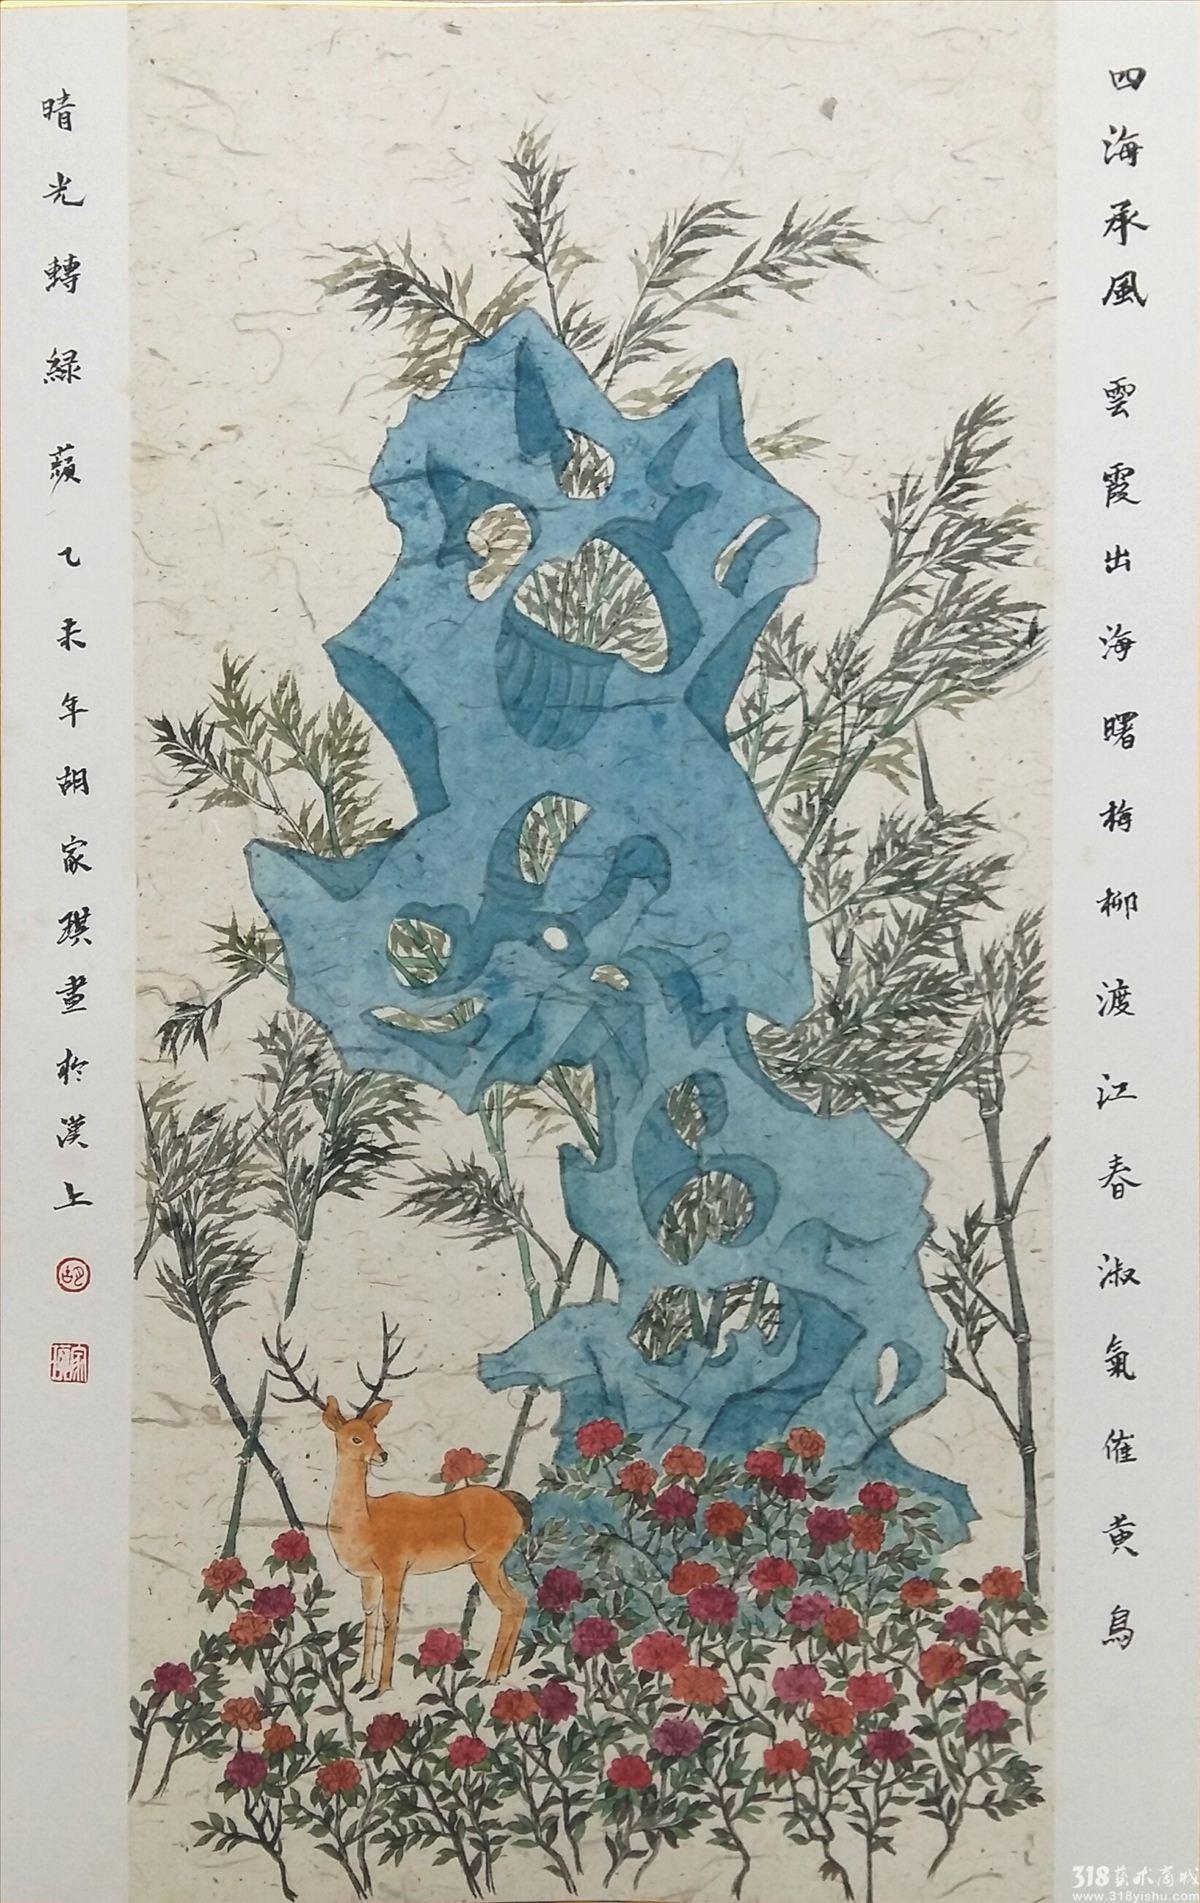 四海承風 雲霞出海曙梅柳渡江春淑氣催黄鳥
晴光轉緑蘋乙未年胡家琪畫於漢上
318艺术商城
www.318yishu.com